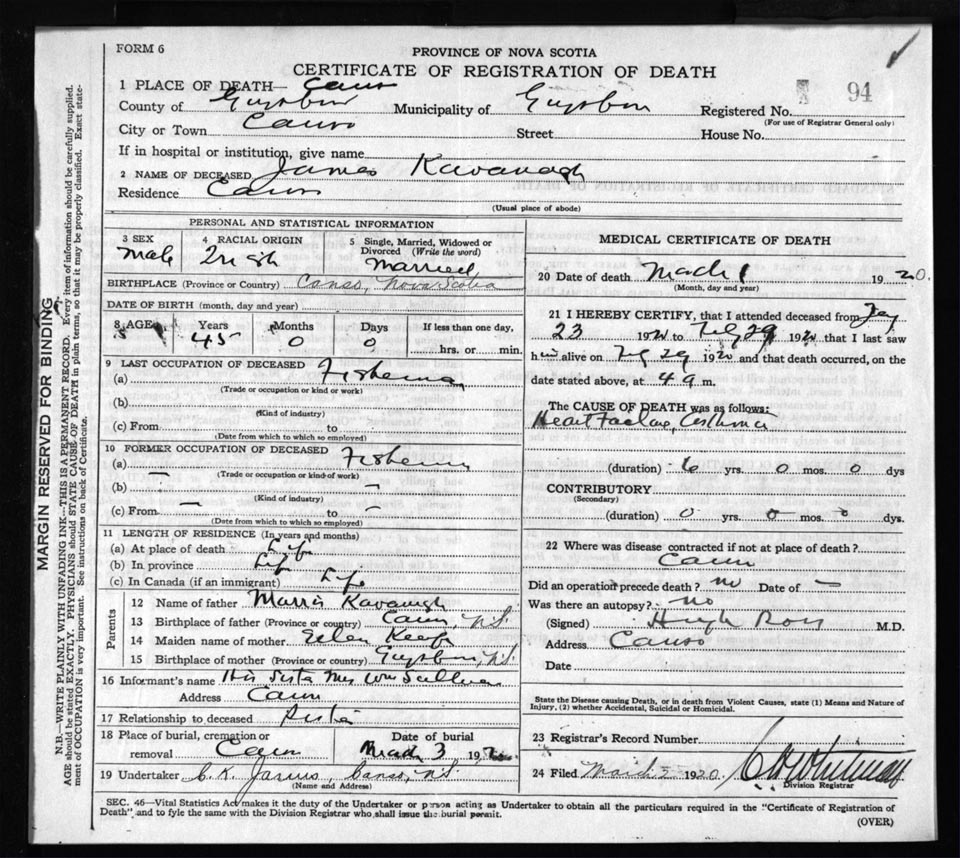 FORM 6
PROVINCE OF NOVA SCOTIA
CERTIFICATE OF REGISTRATION OF DEATH
1 PLACE OF DEATH— Canso
County of Guysboro Municipality of Guysboro Registered No. 94
(For use of Registrar General only)
City or Town Canso Street House No.
If in hospital or institution, give name
2 NAME OF DECEASED James Kavanagh
Residence Canso
(Usual place of abode)
PERSONAL AND STATISTICAL INFORMATION
3 SEX 4 RACIAL ORIGIN 5 Single, Married, Widowed or
Divorced (Write the word)
Male Irish Married
BIRTHPLACE (Province or Country) Canso, Nova Scotia
DATE OF BIRTH (month, day and year)
8 AGE Years Months Days If less than one day,
45 0 0 hrs. or min.
9 LAST OCCUPATION OF DECEASED
(a) Fisherman
(Trade or occupation or kind or work)
(b)
(Kind of industry)
(c) From to
(Date from which to which so employed)
10 FORMER OCCUPATION OF DECEASED
(a) Fisherman
(Trade or occupation or kind of work)
(b) — —
(Kind of industry)
(c) From — to —
(Date from which to which so employed)
11 LENGTH OF RESIDENCE (In years and months)
(a) At place of death Life
(b) In province Life
(c) In Canada (if an immigrant) Life
Parents
12 Name of father Kavanagh
13 Birthplace of father (Province or country) Canso, N.S.
14 Maiden name of mother Keefe
15 Birthplace of mother (Province or country) Guysboro N.S.
16 Informant's name His Sister Mrs Wm Sullivan
Address Canso
17 Relationship to deceased Sister
18 Place of burial, cremation or Date of burial
removal Canso March 3 1920
19 Undertaker C. K. Canso, N.S.
(Name and Address)
MEDICAL CERTIFICATE OF DEATH
20 Date of death March 1 1920.
(Month, day and year)
21 I HEREBY CERTIFY, that I attended deceased from
23 1920 to Feb 29 1920 that I last saw
him alive on Feb 29 1920 and that death occurred, on the
date stated above, at 4 a m.
The CAUSE OF DEATH was as follows:
Heart Failure, Asthma
(duration) 6 yrs. 0 mos. 0 dys
CONTRIBUTORY
(Secondary)
(duration) 0 yrs. 0 mos. 0 dys.
22 Where was disease contracted if not at place of death?
Canso
Did an operation precede death? no Date of —
Was there an autopsy? no
(Signed) Hugh Ross M.D.
Address Canso
Date
State the Disease causing Death, or in death from Violent Causes, state (1) Means and Nature of
Injury, (2) whether Accidental, Suicidal or Homicidal.
23 Registrar's Record Number
24 Filed March 2 1920. Whitman
Division Registrar
SEC. 46—Vital Statistics Act makes it the duty of the Undertaker or person acting as Undertaker to obtain all the particulars required in the "Certificate of Registration of
Death" and to fyle the same with the Division Registrar who shall issue the burial permit.
(OVER)
MARGIN RESERVED FOR BINDING
N.B.—WRITE PLAINLY WITH UNFADING INK—THIS IS A PERMANENT RECORD. Every item of information should be carefully supplied.
AGE should be stated EXACTLY. PHYSICIANS should STATE CAUSE OF DEATH in plain terms, so that it may be properly classified. Exact state-
ment of OCCUPATION is very important. See instructions on back of Certificate.